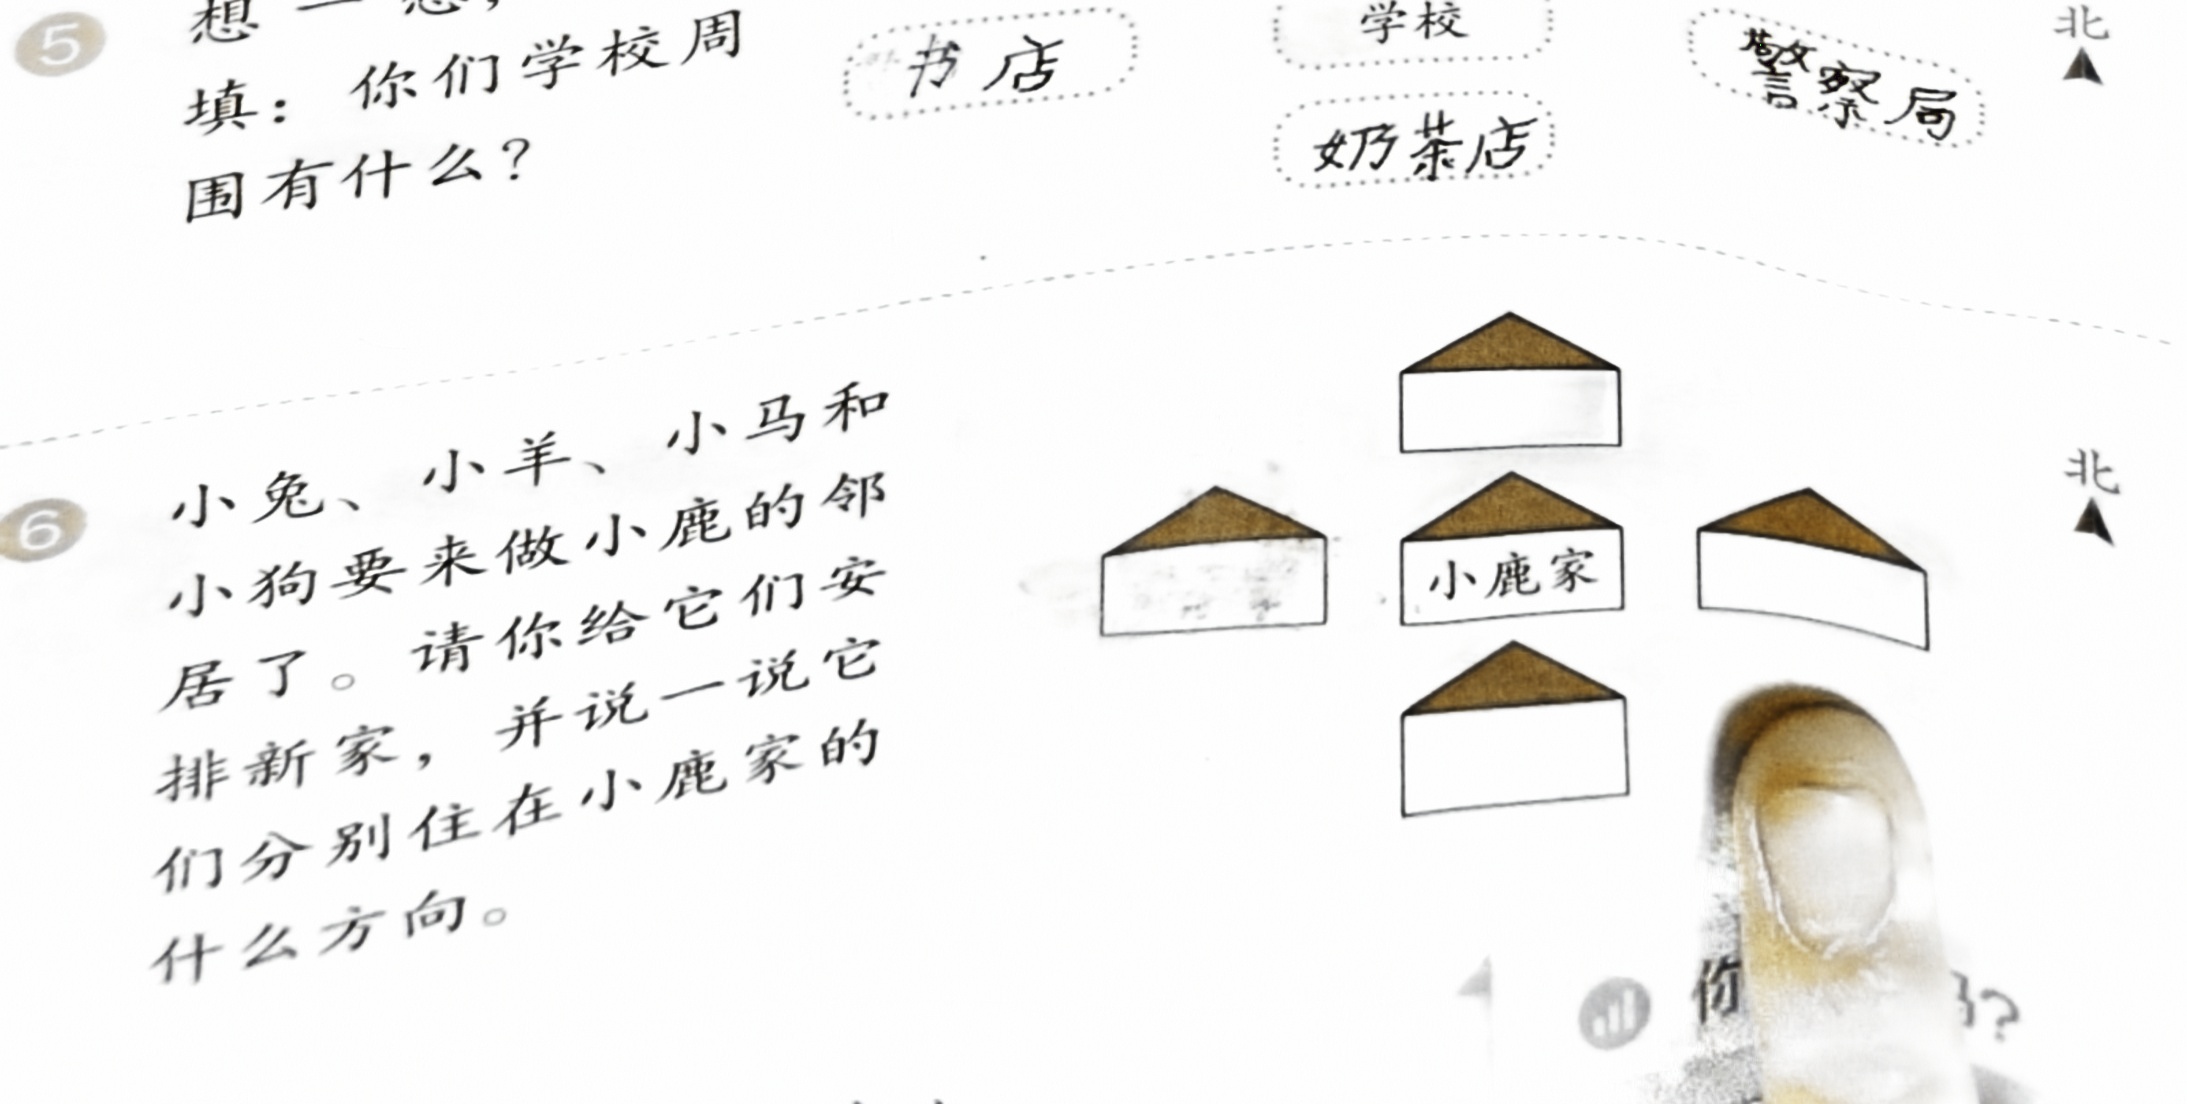 5
想一想，
填：你们学校周
围有什么？
书店
学校
奶茶店
警察局
北
6
小兔、小羊、小马和
小狗要来做小鹿的邻
居了。请你给它们安
排新家，并说一说它
们分别住在小鹿家的
什么方向。
小鹿家
北
你